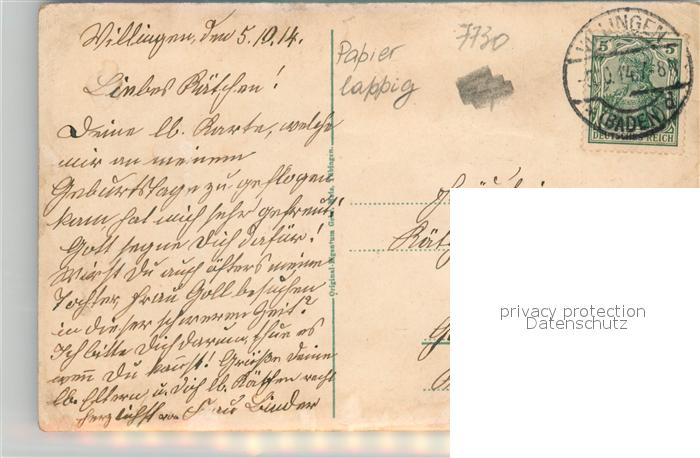 Villingen, den 5.10.14.
Liebes Kätchen!
Deine lb. Karte, welche
mir an meinem
Geburtstage zu geflogen
kam hat mich sehr gefreut!
Gott segne Dich dafür!
Wirst Du auch öfters meine
Tochter Frau Goll besuchen
in dieser schweren Zeit?
Ich bitte Dich darum, thue es
wenn Du kannst! Grüße Deine
lb. Eltern u. Dich lb. Kätchen recht
herzlichst von Frau Binder
Papier
lappig
7730
VILLINGEN
(BADEN)
5 5
DEUTSCHES REICH
Original-Eigentum Tübingen.
Kätch
privacy protection
Datenschutz